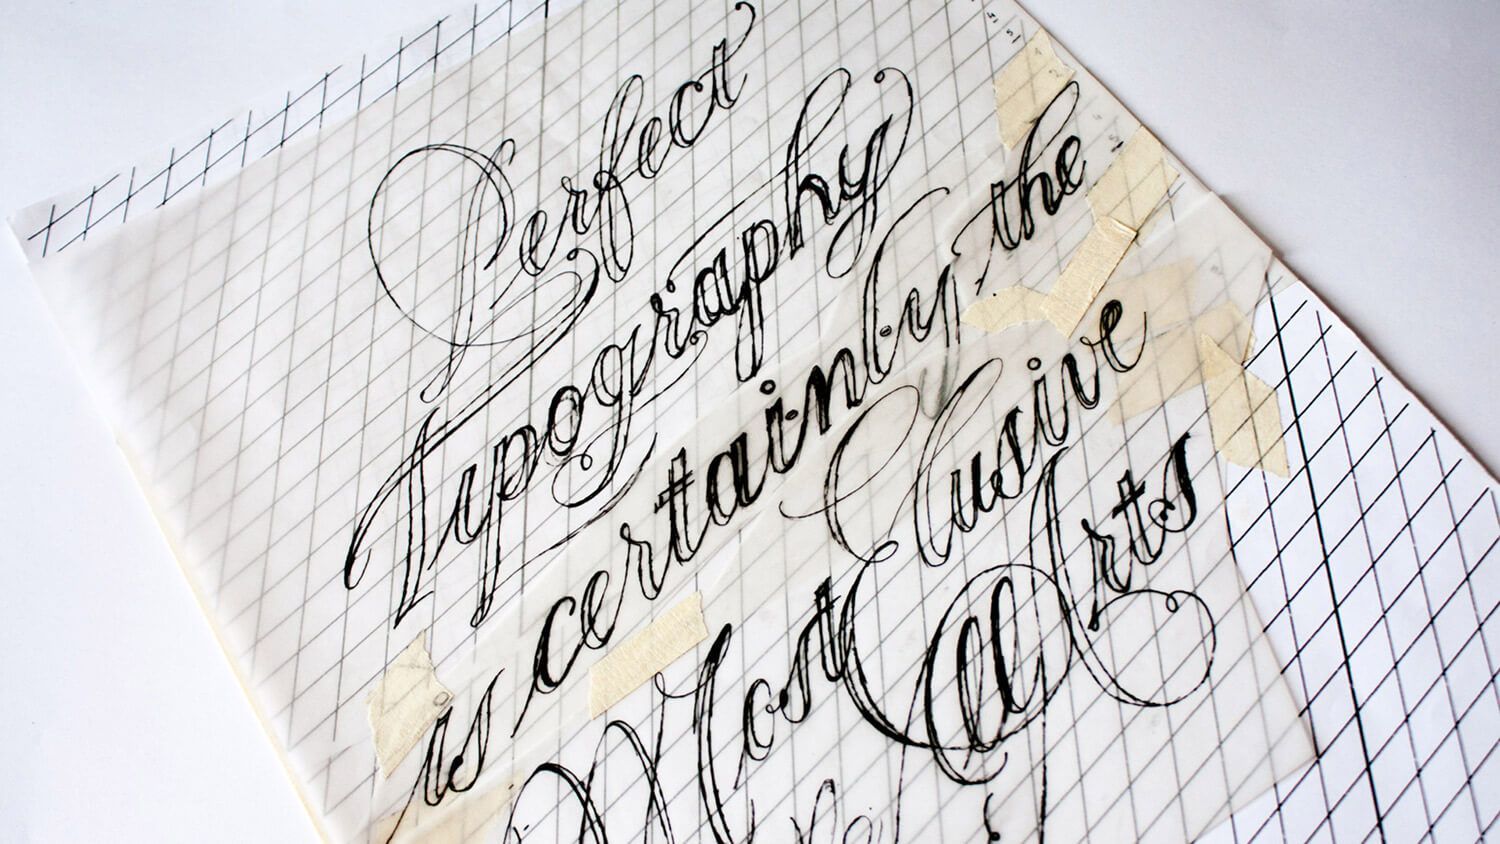 Perfect
Typography
is certainly the
Most Elusive
Arts